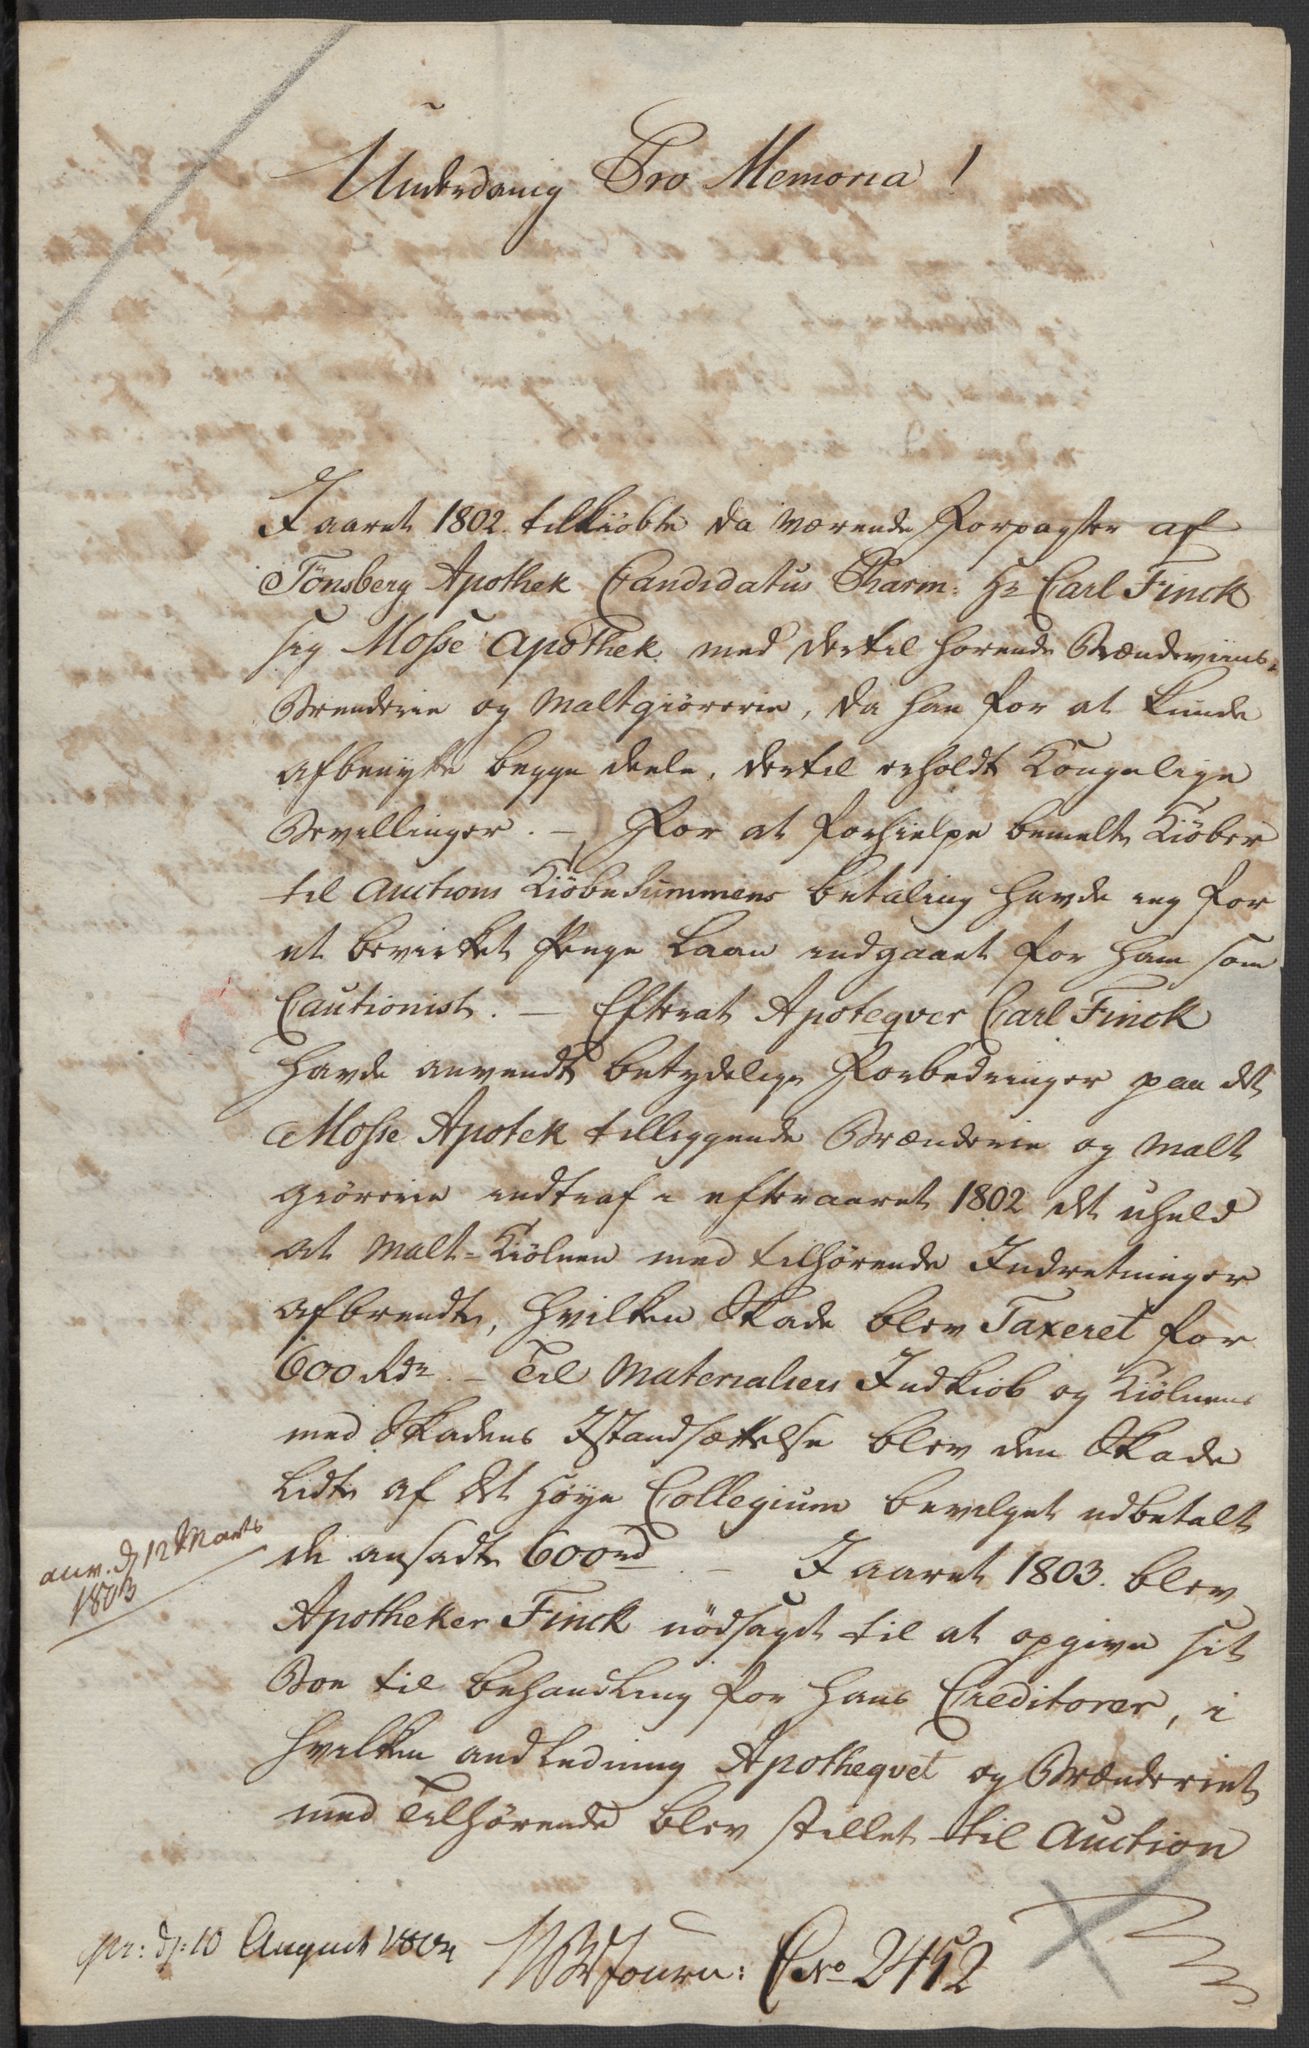 Underdanig Pro Memoria!
I aaret 1802 tilkiöbte da værende Forpagter af
Tönsberg Apothek Candidatus Pharm: Hr Carl Finck
sig Mosse Apothek med dertil hörende Brændeviins-
Brenderie og Maltgiörerie, da han for at kunde
afbenytte begge deele, dertil erholdt Kongelige
Bevillinger. – For at forhielpe bemelte Kiöber
til Auctions Kiöbesummens betaling havde ieg for
et bevirket Penge Laan indgaaet for ham som
Cautionist. – Efterat Apoteqver Carl Finck
havde anvendt betydelige Forbedringer paa det
Mosse Apotek tilliggende Brænderie og Malt
giörerie indtraf i efteraaret 1802 det uheld
at Malt-Kiölnen med tilhörende Indretninger
afbrendte, hvilken Skade blev Taxeret for
600 Rdr – Til Materialiers Indkiöb og Kiölnens
med Skadens Istandsættelse blev den Skade
Lidte af det Höye Collegium bevilget udbetalt
de ansadte 600rd – I aaret 1803. blev
anv. d 12 Marts
1803
Apotheker Finck nödsaget til at opgive sit
Boe til behandling for hans Creditorer, i
hvilken andledning Apotheqvet og Brænderiet
med Tilhörende blev stillet til Auction
pr: d: 10 August 1804
Journ: C No 2452